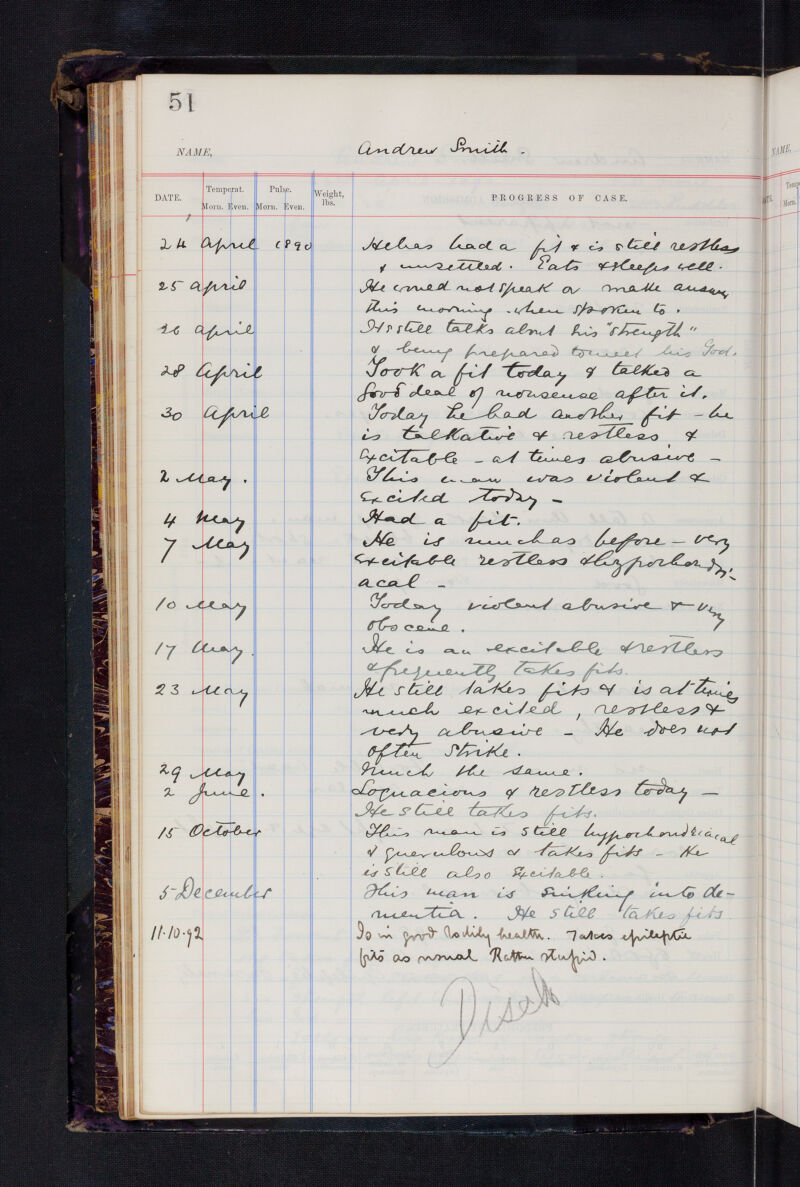 51
NAME, Andrew Smith.
DATE. Temperat. Pulse. Weight, lbs. PROGRESS OF CASE.
Morn. Even. Morn. Even.
24 April 1890 He has had a fit & is still restless
& unsettled. Eats & sleeps well.
25 April He would not speak or make answer
this morning when spoken to.
26 April He still talks about his "strength"
& being prepared to meet his God.
28 April Took a fit today & talked a
good deal of nonsense after it.
30 April Today he had another fit - he
is talkative & restless &
excitable - at times abusive -
2 May. This man was violent &
excited today -
4 May Had a fit.
7 May He is much as before - very
excitable restless & hypochondri-
acal -
10 May Today violent abusive & very
obscene.
17 May. He is an excitable & restless
& frequently takes fits.
23 May He still takes fits & is at times
much excited, restless &
very abusive - He does not
often strike.
29 May Much the same.
2 June. Loquacious & restless today -
He still takes fits.
15 October This man is still hypochondriacal
& querulous & takes fits - He
is still also excitable.
5 December This man is sinking into de-
mentia. He still takes fits
11.10.92 Is in good bodily health. Takes epileptic
fits as usual Rather stupid.
NAME.
DATE. Temp
Morn.